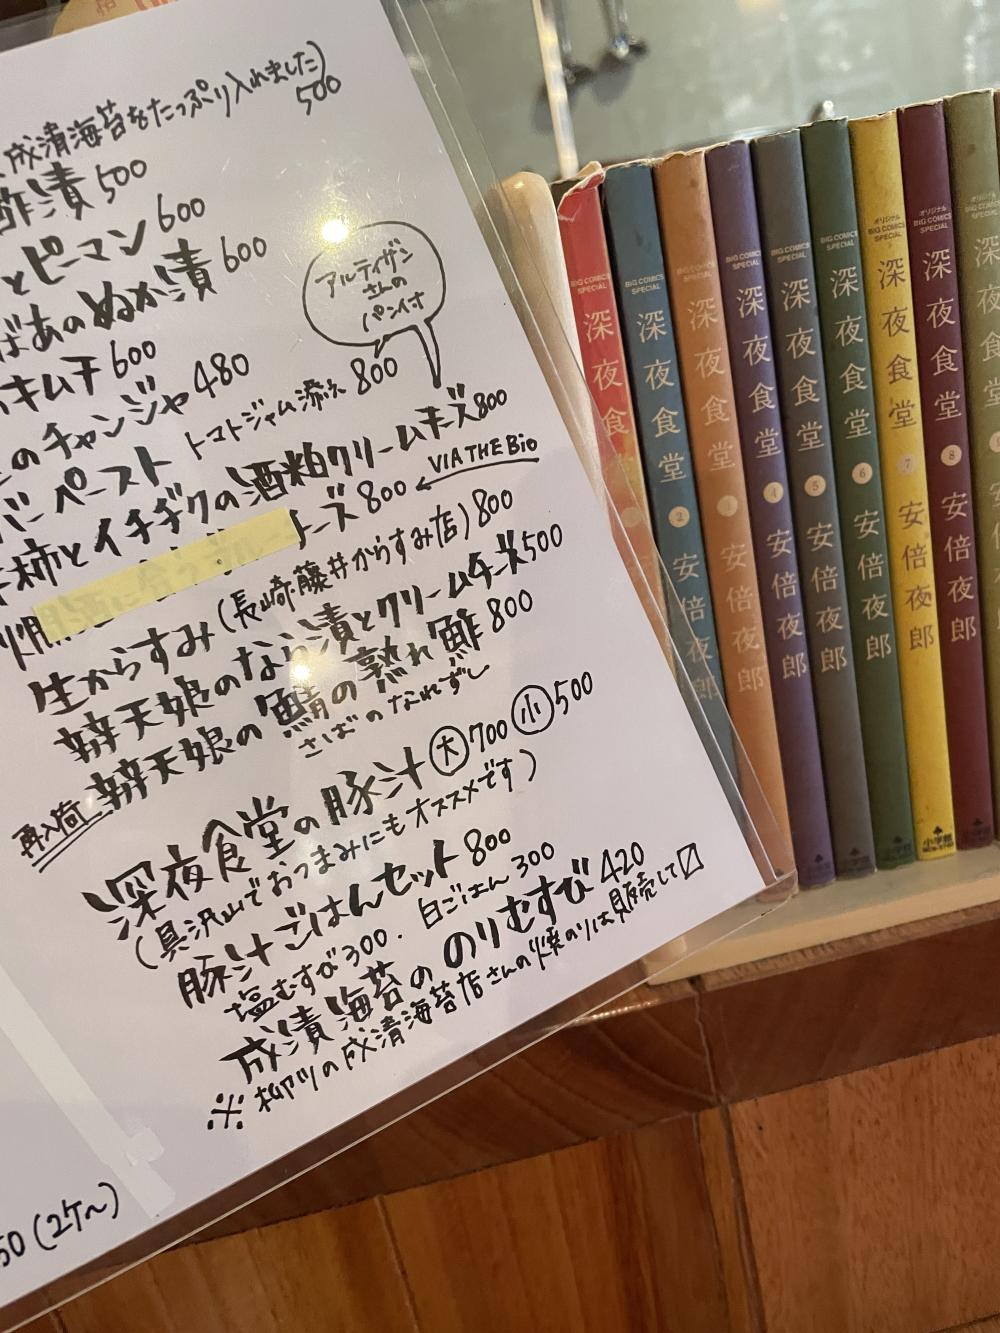 成清海苔をたっぷり入れました)
500
酢漬 500
とピーマン 600
ばあのぬか漬 600
キムチ 600
のチャンジャ 480
バーペースト トマトジャム添え 800
アルティザン
さんの
パン付
柿とイチヂクの酒粕クリームチーズ 800
チーズ 800
VIA THE BIO
生からすみ (長崎・藤井からすみ店) 800
辨天娘のなら漬とクリームチーズ 500
辨天娘の鯖の熟れ鮓 800
さばのなれずし
再入荷
深夜食堂の豚汁 大 700 小 500
(具沢山でおつまみにもオススメです)
豚汁ごはんセット 800
塩むすび 300. 白ごはん 300
成清海苔ののりむすび 420
※柳川の成清海苔店さんの焼のりは販売して〼
50 (2ケ〜)
BIG COMICS
SPECIAL
深夜食
BIG COMICS
SPECIAL
深夜食堂 2 安倍夜郎
BIG COMICS
SPECIAL
深夜食堂 3 安倍夜郎
BIG COMICS
SPECIAL
深夜食堂 4 安倍夜郎
BIG COMICS
SPECIAL
深夜食堂 5 安倍夜郎
BIG COMICS
SPECIAL
深夜食堂 6 安倍夜郎
小学館
オリジナル
BIG COMICS
SPECIAL
深夜食堂 7 安倍夜郎
小学館
オリジナル
BIG COMICS
SPECIAL
深夜食堂 8 安倍夜郎
小学館
オリジナル
深夜食堂